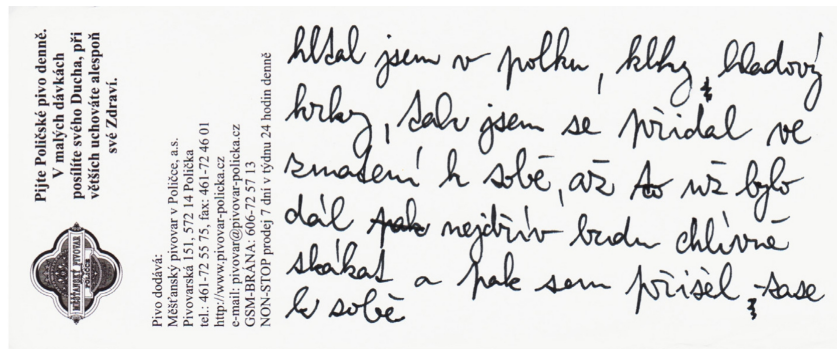 Pijte Poličské pivo denně.
V malých dávkách
posílíte svého Ducha, při
větších uchováte alespoň
své Zdraví.
MĚŠŤANSKÝ PIVOVAR
Pivo dodává:
Měšťanský pivovar v Poličce, a.s.
Pivovarská 151, 572 14 Polička
tel.: 461-72 55 75, fax: 461-72 46 01
http://www.pivovar-policka.cz
e-mail: pivovar@pivovar-policka.cz
GSM-BRÁNA: 606-72 57 13
NON-STOP prodej 7 dní v týdnu 24 hodin denně
hltal jsem v polku, klky, hladový
krky, jsem se přidal ve
zmatení k sobě, až to už bylo
dál pak nejdřív budu chlívně
skákat a pak sem přišel zase
k sobě